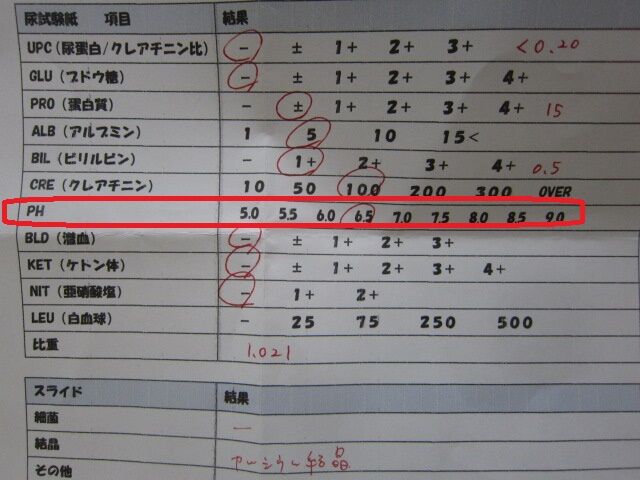 尿試験紙 項目 結果
UPC(尿蛋白/クレアチニン比) - ± 1+ 2+ 3+ <0.20
GLU(ブドウ糖) - ± 1+ 2+ 3+ 4+
PRO(蛋白質) - ± 1+ 2+ 3+ 4+ 15
ALB(アルブミン) 1 5 10 15<
BIL(ビリルビン) - 1+ 2+ 3+ 4+ 0.5
CRE(クレアチニン) 10 50 100 200 300 OVER
PH 5.0 5.5 6.0 6.5 7.0 7.5 8.0 8.5 9.0
BLD(潜血) - ± 1+ 2+ 3+
KET(ケトン体) - ± 1+ 2+ 3+ 4+
NIT(亜硝酸塩) - 1+ 2+
LEU(白血球) - 25 75 250 500
比重 1.021
スライド 結果
細菌 -
結晶
その他 結晶